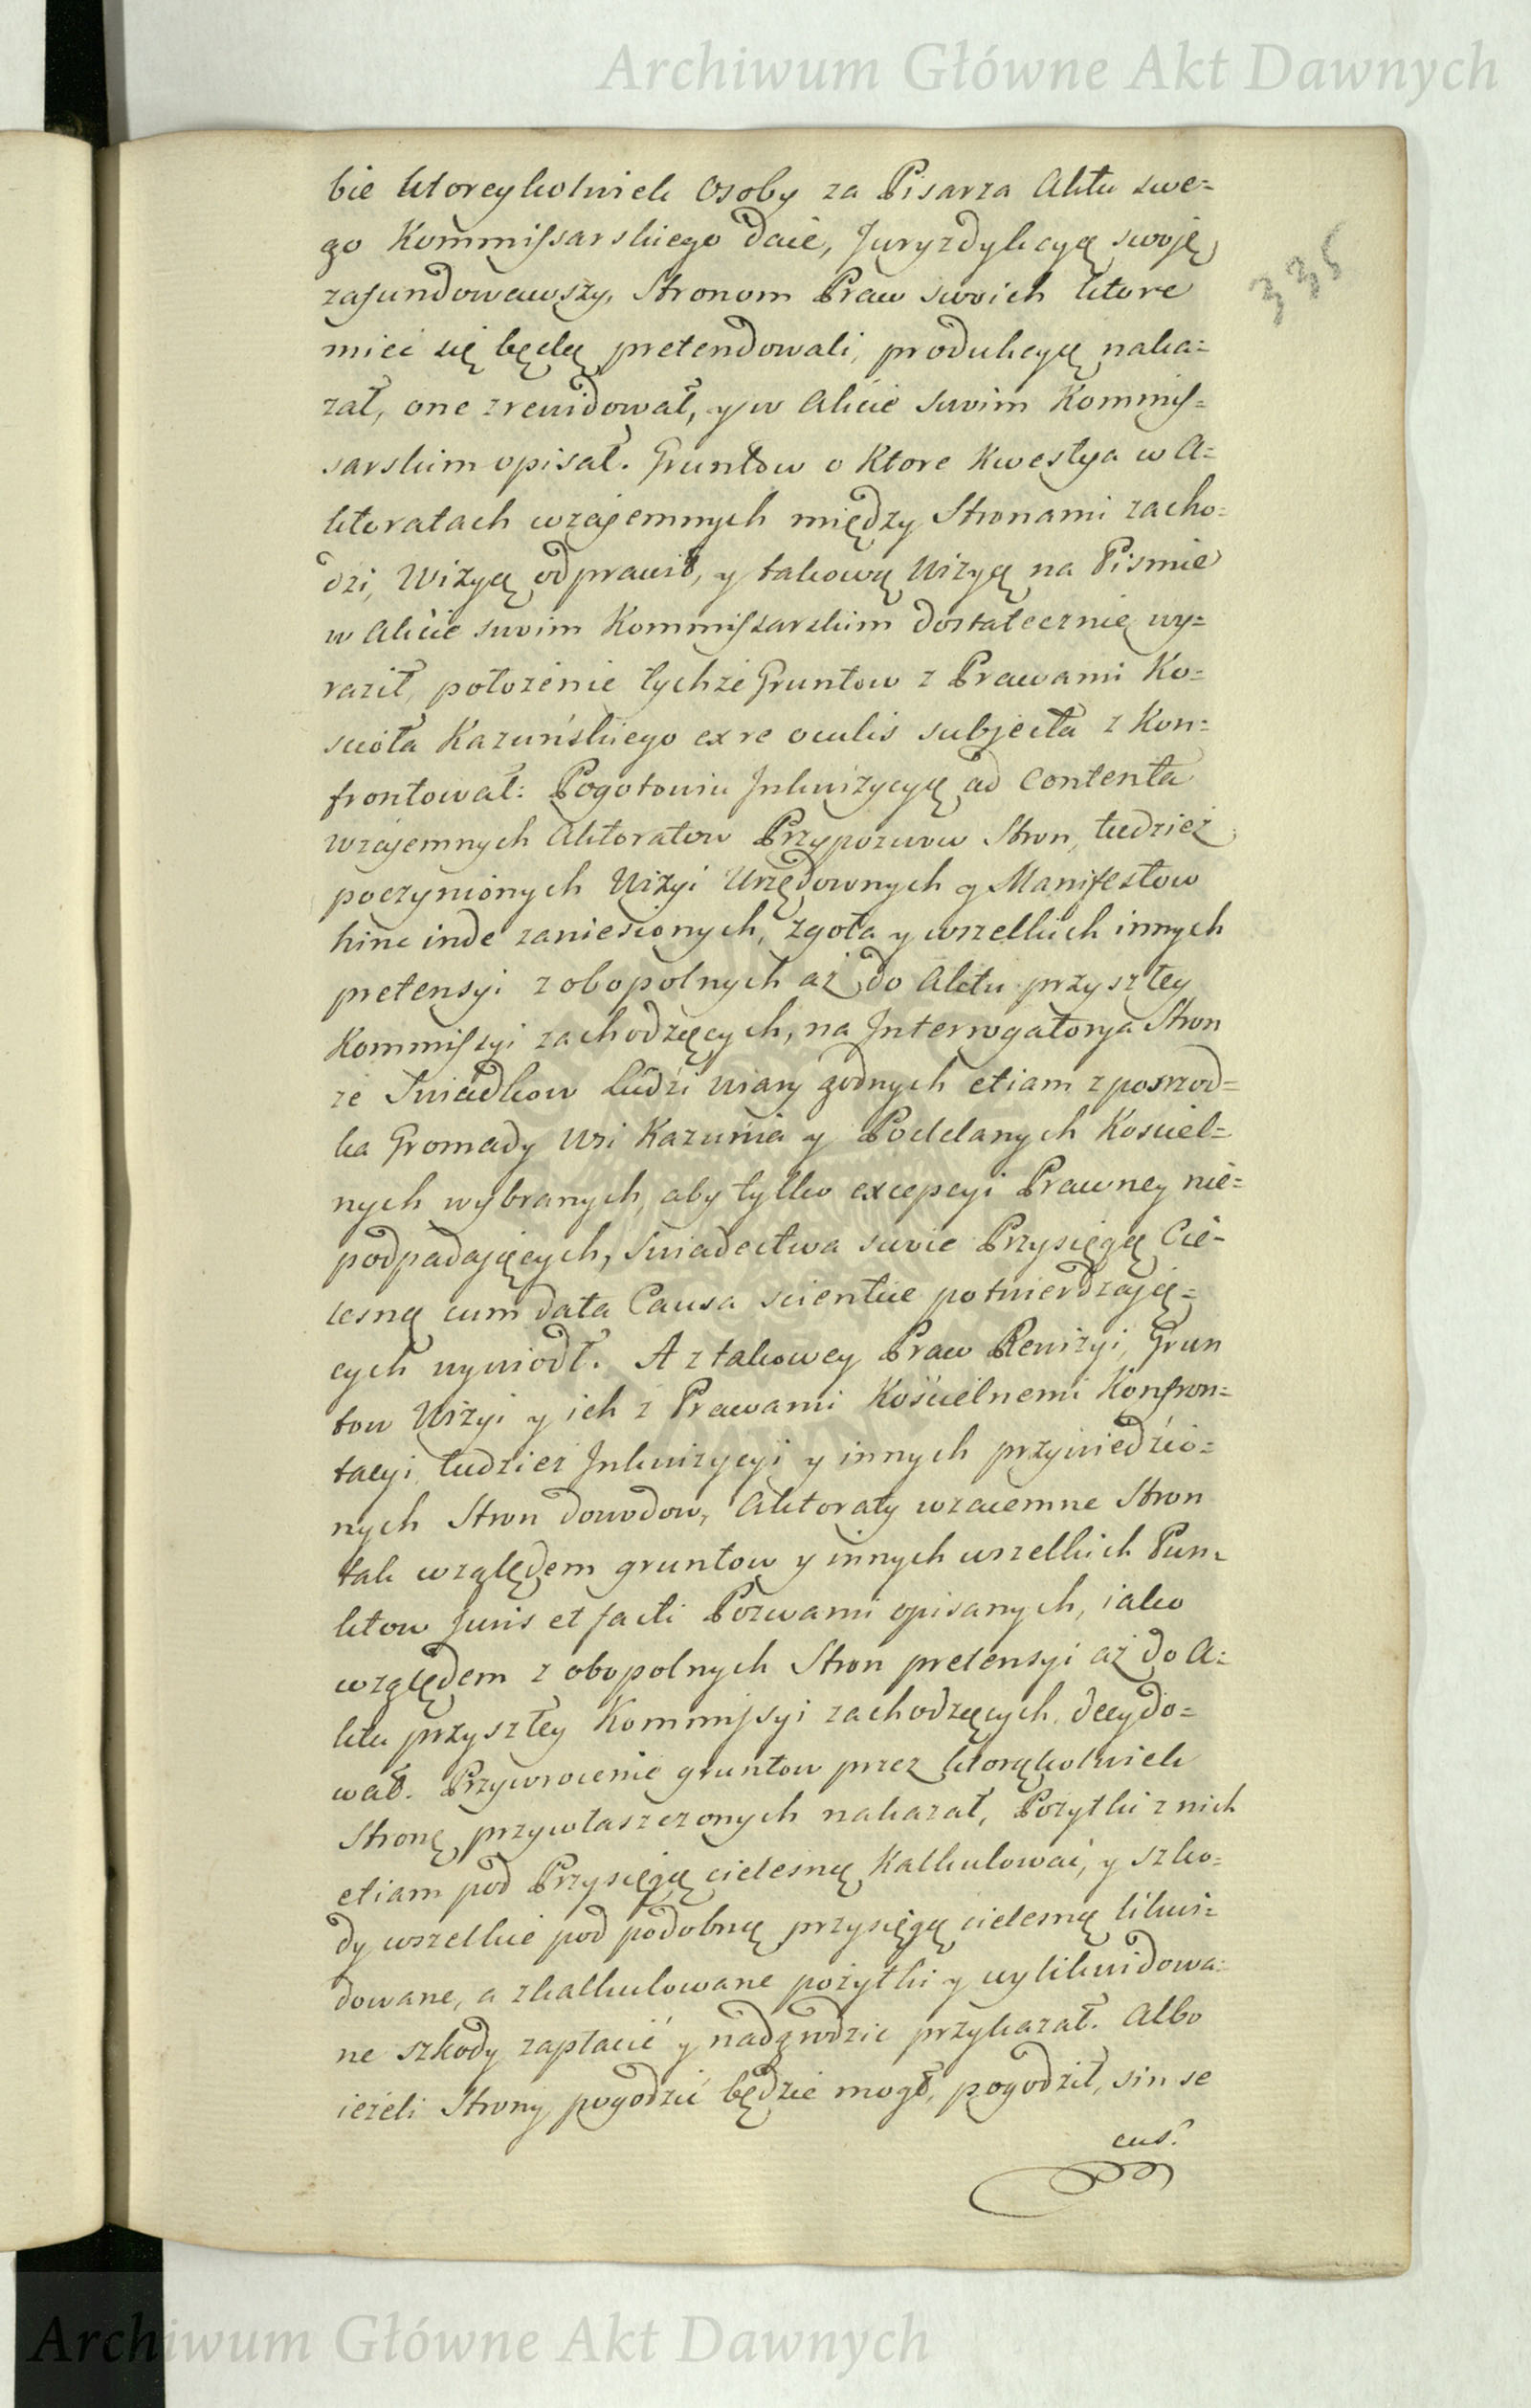 Archiwum Główne Akt Dawnych
335
bie ktoreykolwiek Osoby za Pisarza Aktu swe=
go Kommissarskiego daie, Juryzdykcyą swoię
zafundowawszy, Stronom Praw swoich ktore
mieć się będą pretendowali, produkcyą naka=
zał, one zrewidował, y w Akcie swoim Kommis=
sarskim opisał. Gruntow o Ktore Kwestya w A=
ktoratach wzajemnych między Stronami zacho=
dzi, Wizyą odprawił, y takową Wizyą na Pismie
w Akcie swoim Kommissarskim dostatecznie wy=
raził, położenie tychże Gruntow z Prawami Ko=
scioła Kazuńskiego ex re oculis subjecta z Kon=
frontował: Pogotowiu Inkwizycyą ad Contenta
wzajemnych Aktoratow Przypozwow Stron, tudzież
poczynionych Wizyi Urzędownych y Manifestow
hinc inde zaniesionych, zgoła y wszelkich innych
pretensyi z obopolnych aż do Aktu przyszłey
Kommissyi zachodzących, na Interrogatorya Stron
ze Swiadkow Ludzi wiary godnych etiam z posrzod=
ka Gromady Wsi Kazunia y Poddanych Kosciel=
nych wybranych, aby tylko excepcyi Prawney nie=
podpadaiących, Swiadectwa swoie Przysięgą Cie=
lesną cum data Causa scientiæ potwierdzaią=
cych wywiodł. A z takowey Praw Rewizyi, Grun
tow Wizyi y ich z Prawami Kościelnemi Konfron=
tacyi, tudzież Inkwizycyi y innych przywiedzio=
nych Stron dowodow, Aktoraty wzaiemne Stron
tak względem gruntow y innych wszelkich Pun=
ktow Juris et facti Pozwami opisanych, iako
względem z obopolnych Stron pretensyi aż do A=
ktu przyszłey Kommissyi zachodzących, decydo=
wał. Przywrocenie gruntow przez ktorąkolwiek
Stronę przywłaszczonych nakazał, Pożytki z nich
etiam pod Przysięgą cielesną Kalkulować, y szko=
dy wszelkie pod podobną przysięgą cielesną likwi=
dowane, a zkalkulowane pożytki y wylikwidowa=
ne szkody zapłacić y nadgrodzić przykazał. Albo
ieżeli Strony pogodzić będzie mogł, pogodził, sin se
cus.
Archiwum Główne Akt Dawnych